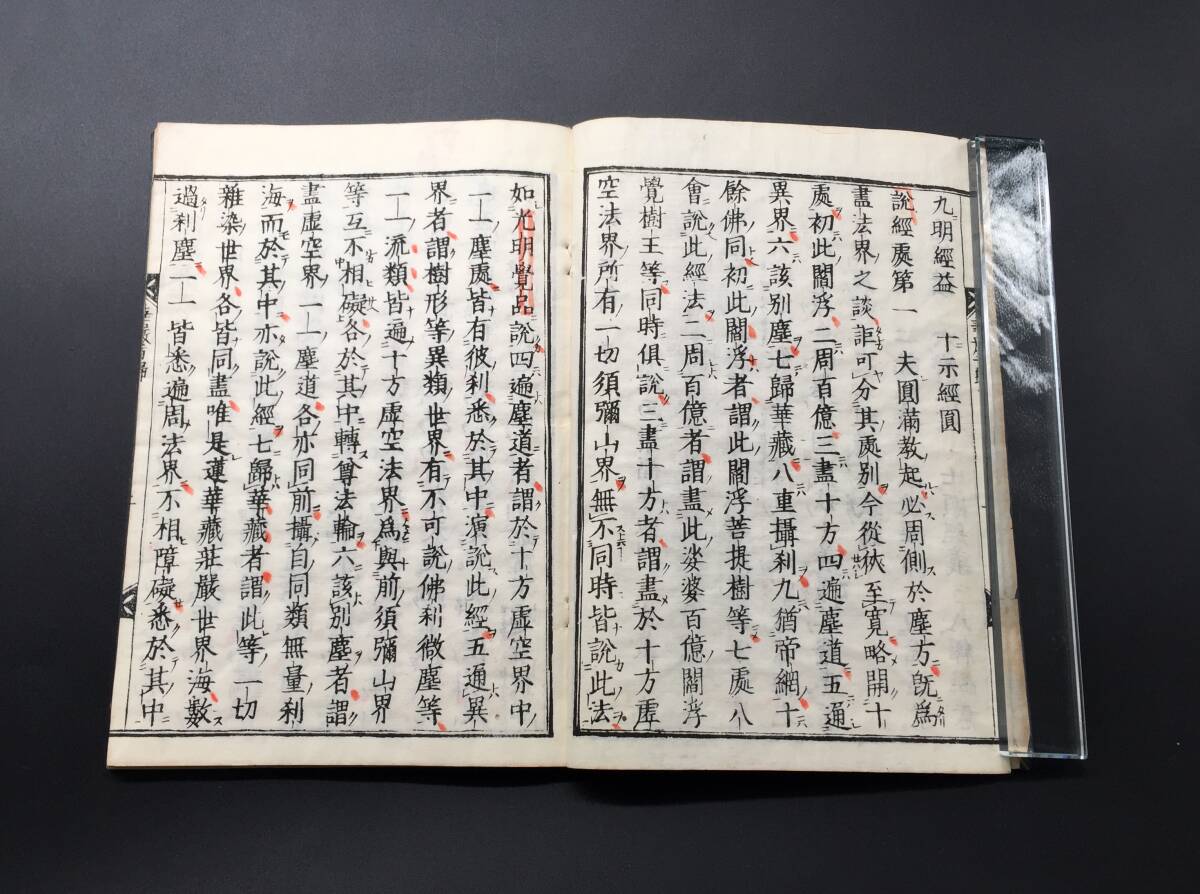 九明經益　十示經圓
說經處第一　夫圓滿教起必周側於塵方旣爲
盡法界之談詎可分其處別今從狹至寬略開十
處初此閻浮二周百億三盡十方四遍塵道五通
異界六該別塵七歸華藏八重攝刹九猶帝網十
餘佛同初此閻浮者謂此閻浮菩提樹等七處八
會說此經法二周百億者謂盡此娑婆百億閻浮
覺樹王等同時俱說三盡十方者謂盡於十方虛
空法界所有一切須彌山界無不同時皆說此法
如光明覺品說四遍塵道者謂於十方虛空界中
一一塵處皆有彼刹悉於其中演說此經五通異
界者謂樹形等異類世界有不可說佛刹微塵等
一一流類皆遍十方虛空法界爲與前須彌山界
等互不相礙各於其中轉尊法輪六該別塵者謂
盡虛空界一一塵道各亦同前攝自同類無量刹
海而於其中亦說此經七歸華藏者謂此等一切
雜染世界各皆同盡唯是蓮華藏莊嚴世界海數
過刹塵一一皆悉遍周法界不相障礙悉於其中